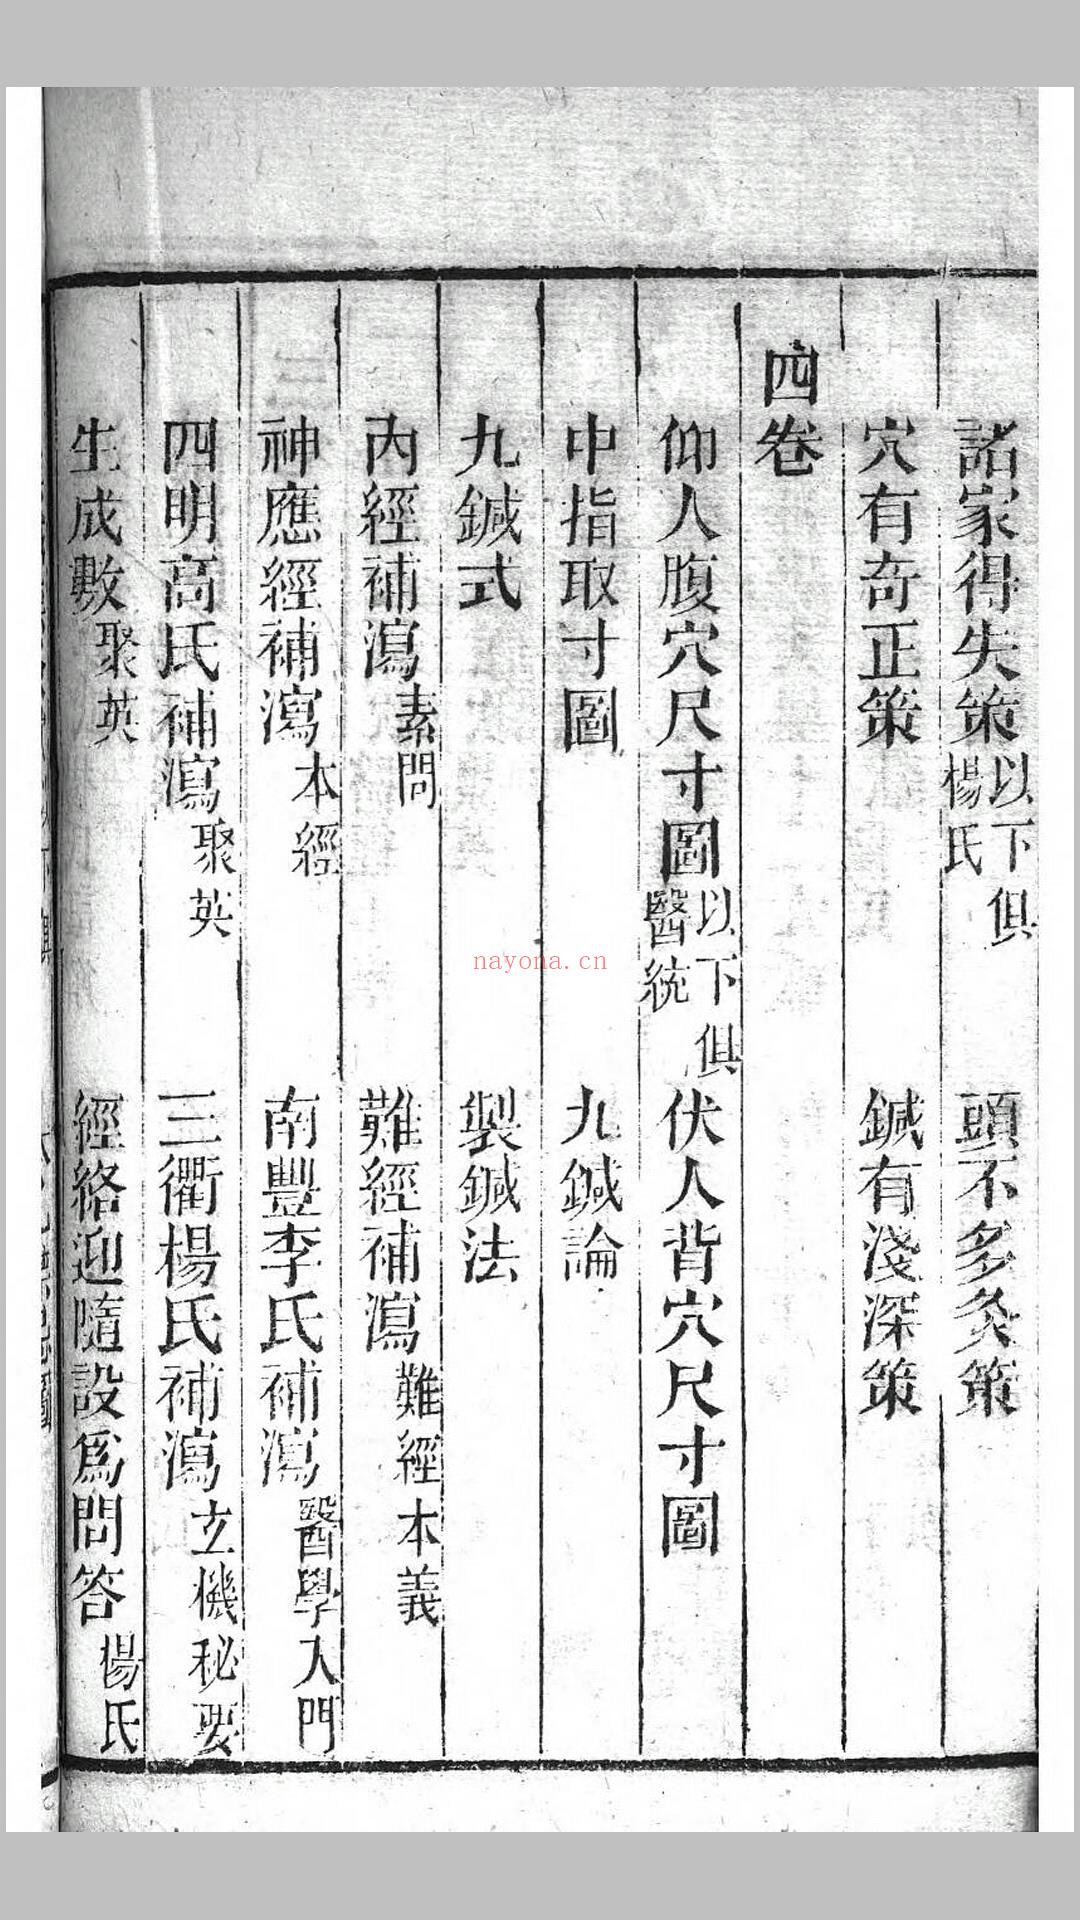 諸家得失策以下俱楊氏　頭不多灸策
穴有奇正策　鍼有淺深策
四卷
仰人腹穴尺寸圖以下俱醫統　伏人背穴尺寸圖
中指取寸圖　九鍼論
九鍼式　製鍼法
內經補瀉素問　難經補瀉難經本義
神應經補瀉本經　南豐李氏補瀉醫學入門
四明高氏補瀉聚英　三衢楊氏補瀉玄機秘要
生成數聚英　經絡迎隨設爲問答楊氏
nayona.cn